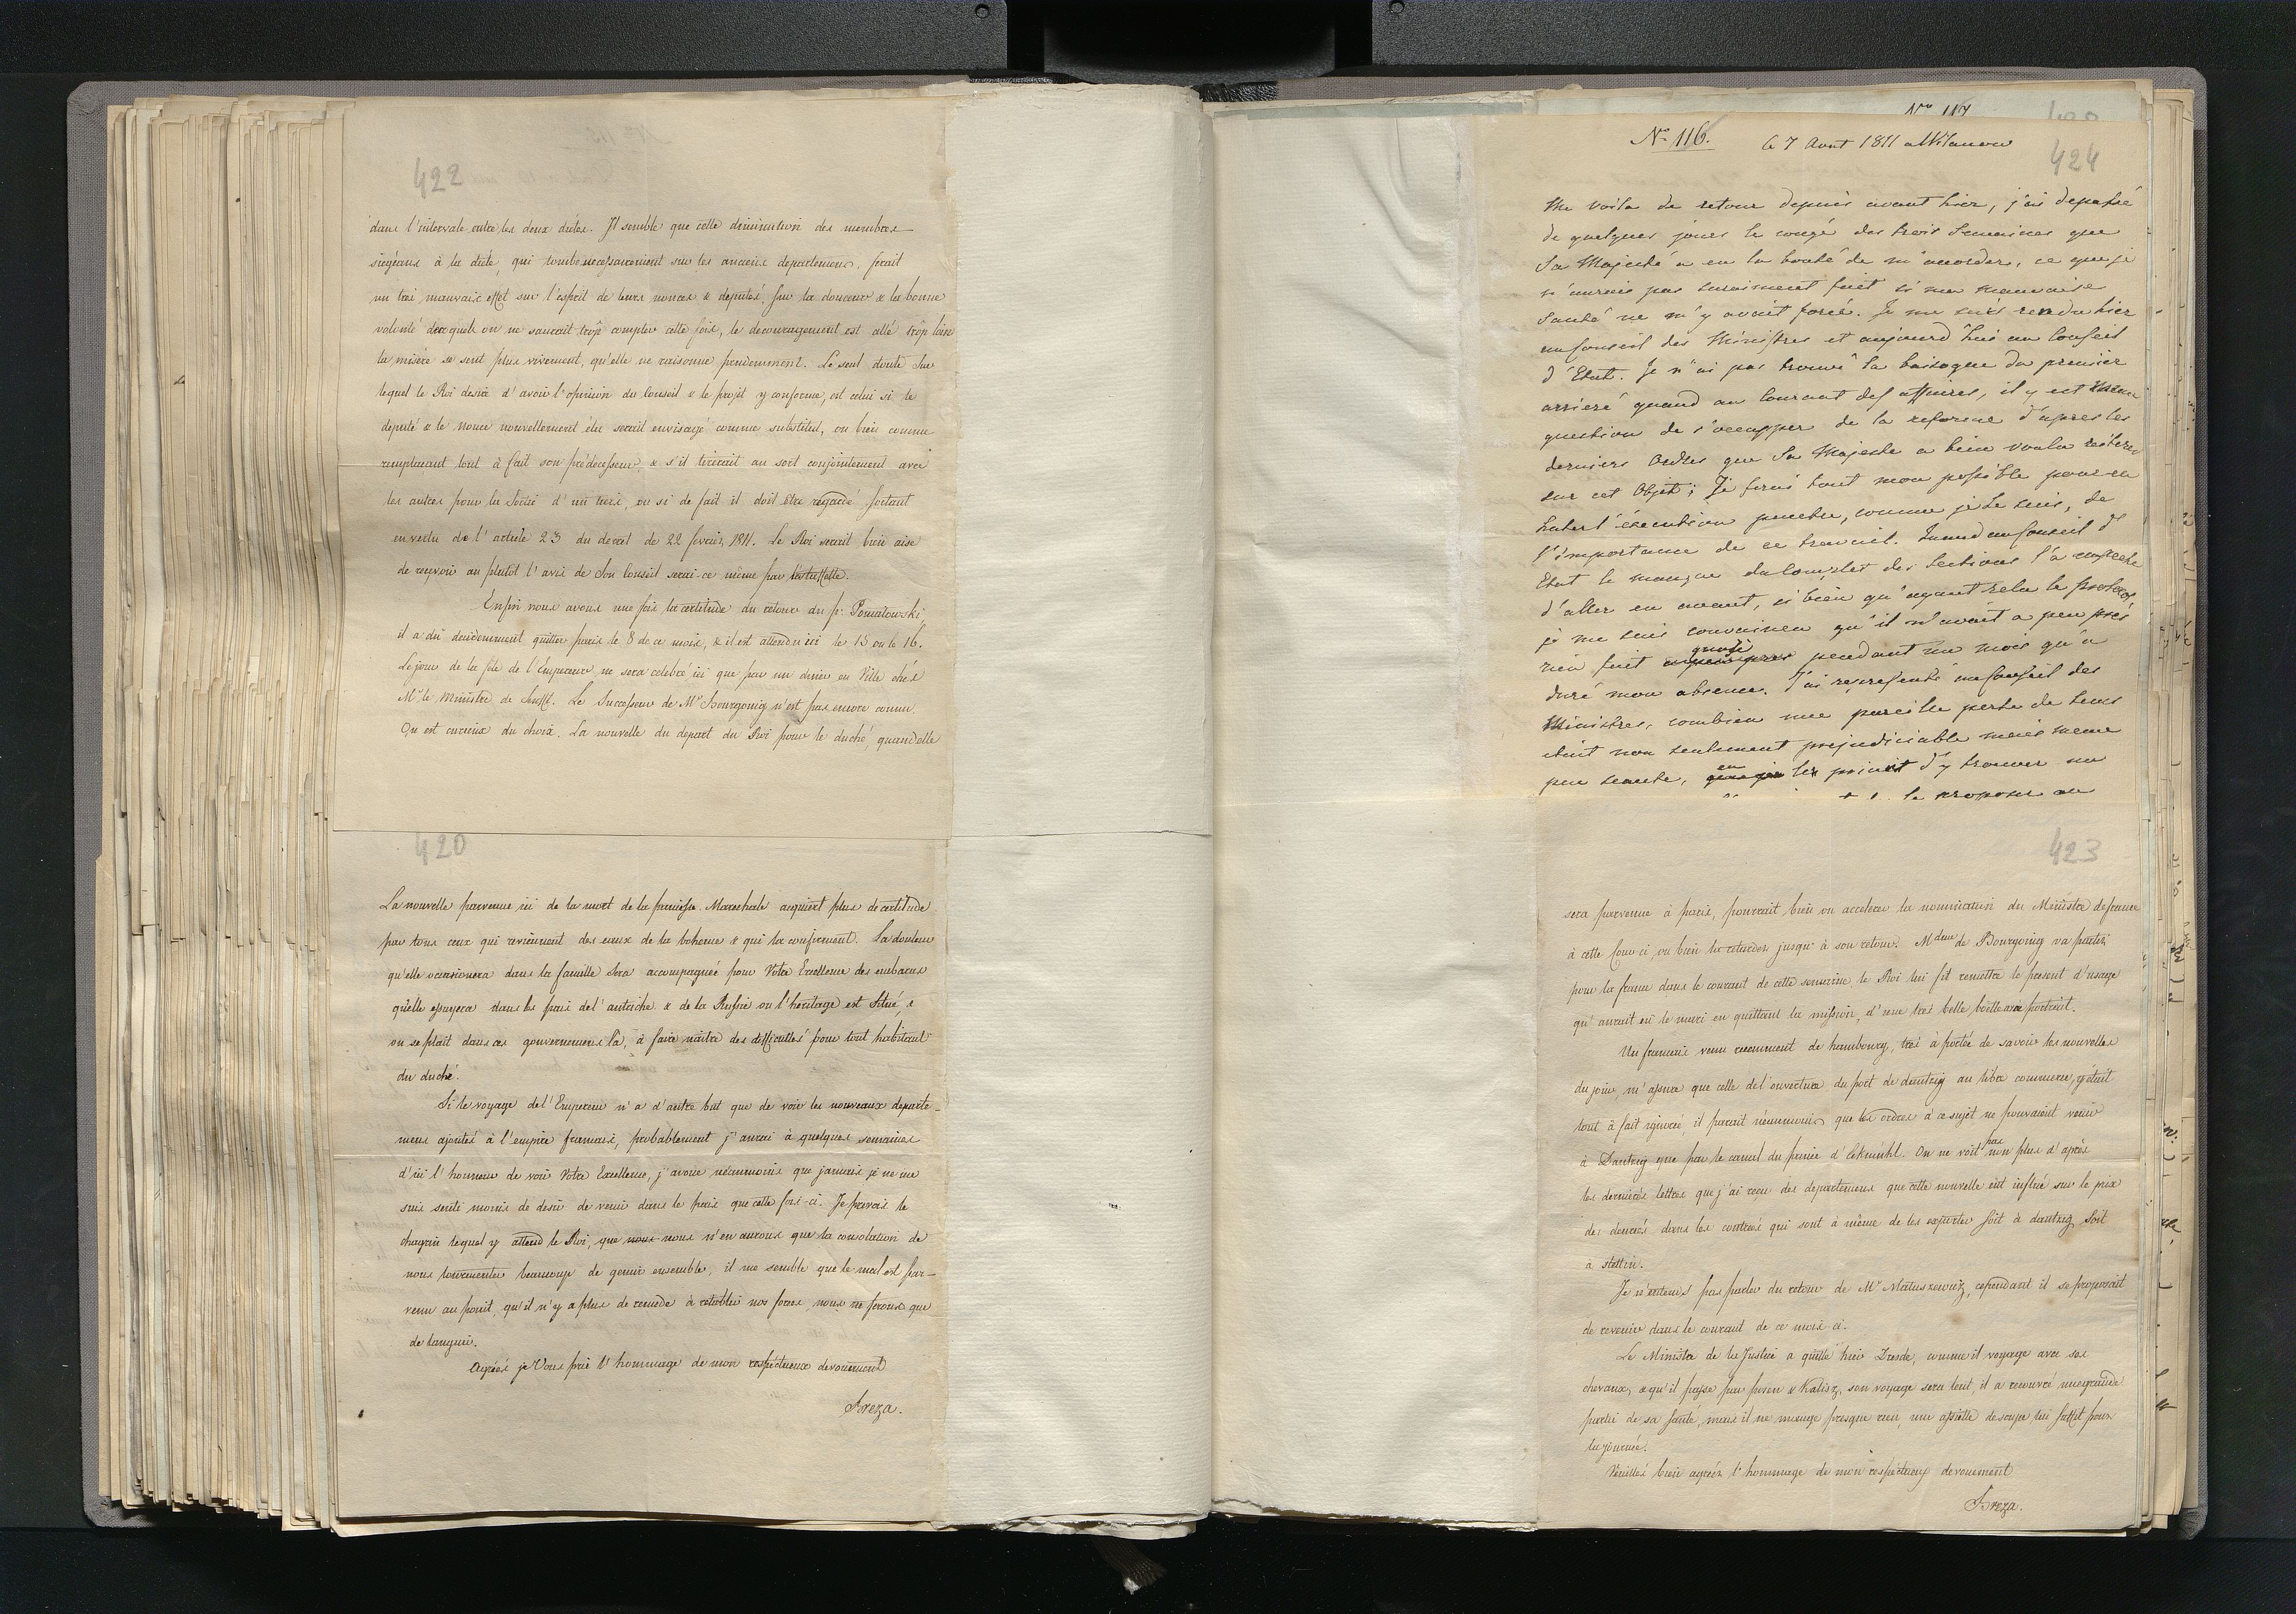 422
dans l'intervale entre les deux diétes. Il semble que cette diminution des membres
siegeans à la diéte, qui tombe necessairement sur les anciens departemens, ferait
un trés mauvais effet sur l'esprit de leurs nonces & deputés, sur la douceur & la bonne
volonté desquels on ne saurait trop compter cette fois, le decouragement est allé trop loin
la misére se sent plus vivement, qu'elle ne raisonne prudemment. Le seul doute sur
lequel le Roi desire d'avoir l'opinion du Conseil & le projet y conforme, est celui si le
deputé & le nonce nouvellement élu serait envisagé comme substitut, ou bien comme
remplacant tout à fait son prédecesseur, & s'il tirerait au sort conjointement avec
les autres pour la sortie d'un tiers, ou si de fait il doit être regardé sortant
en vertu de l'article 23 du decret de 22 fevrier 1811. Le Roi serait bien aise
de reçevoir au plutôt l'avis de Son Conseil serai-ce même par
Enfin nous avons une fois la certitude du retour du p: Poniatowski,
il a dû decidemment quitter paris le 8 de ce mois, & il est attendu ici le 15 ou le 16.
Le jour de la fête de l'Empereur ne sera celebré ici que par un diner en Ville chés
Mr le Ministre de Senfft. Le Successeur de Mr Bourgoing n'est pas encore connu.
On est curieux du choix. La nouvelle du depart du Roi pour le duché, quand elle
420
La nouvelle parvenue ici de la mort de la princesse Marechale acquiert plus de certitude
par tous ceux qui reviennent des eaux de la boheme & qui la confirment. La douleur
qu'elle occasionera dans la famille sera accompagnée pour Votre Excellence des embaras
qu'elle essuyera dans les pais de l'autriche & de la Russie ou l'heritage est situé,
on se plait dans ces gouvernemens là, à faire naitre des difficultés pour tout habitant
du duché.
Si le voyage de l'Empereur n'a d'autre but que de voir les nouveaux departe-
mens ajoutés à l'empire francais, probablement j'aurai à quelques semaines
d'ici l'honneur de voir Votre Excellence, j'avoue néanmoins que jamais je ne me
suis senti moins de desir de venir dans le pais que cette fois-ci. Je prevois le
chagrin lequel y attend le Roi, que nous nous n'en aurons que la consolation de
nous tourmenter beaucoup de gemir ensemble, il me semble que le mal est par-
venu au point, qu'il n'y a plus de remede à retablir nos forces, nous ne ferons que
de languir.
Agréés je Vous prie l'hommage de mon respectueux devouement
Breza.
No 117
No 116.
le 7 Aout 1811 a Wilanow
424
Me voila de retour depuis avant hier, j'ai depassé
de quelques jours le congé des trois Semaines que
Sa Majesté a eu la bonté de m'accorder, ce que je
n'aurais pas surement fait si ma mauvaise
Santé ne m'y avait forcé. Je me suis rendu hier
au Conseil des Ministres et aujourd'hui au Conseil
d'Etat. Je n'ai pas trouvé la besogne du premier
arrieré quand au courant des affaires, il y est
question de s'occupper de la reforme d'apres les
derniers Ordres que Sa Majeste a bien voulu
sur cet Objet; Je ferai tout mon possible pour en
hater l'éxecution penetré, comme je le suis, de
l'importance de ce travail. Quand au Conseil d'
Etat le manque du complet des Sections l'a empeché
d'aller en avant, si bien qu'ayant relu le
je me suis convaincu qu'il n'avait a peu près
rien fait pendant un mois qu'a
duré mon absence. J'ai representé au Conseil des
Ministres, combien une pareille perte de tems
etait non seulement préjudiciable mais meme
peu seante, en les priant d'y trouver un
le proposer au
423
sera parvenue à paris, pourrait bien ou accelerer la nomination du Ministre de france
à cette Cour ci, ou bien la retarder jusqu'à son retour. Mdame de Bourgoing va partir
pour la france dans le courant de cette semaine, le Roi lui fit remettre le present d'usage
qu'aurait eu le mari en quittant la mission, d'une trés belle boëtte avec portrait.
Un francais venu recemment de hambourg, trés à portée de savoir les nouvelles
du jour, m'assura que celle de l'ouverture du port de dantzig au libre commerce, y était
tout à fait ignorée, il parait néanmoins que les ordres à ce sujet ne pouvaient venir
à Dantzig que par le canal du prince d'Ekmühl. On ne voit pas non plus d'aprés
les derniéres lettres que j'ai reçu des departemens que cette nouvelle eut influé sur le prix
des denrées dans les contrées qui sont à même de les exporter soit à dantzig soit
à stettin.
Je n'entens pas parler du retour de Mr Matuszewicz, cependant il se proposait
de revenir dans le courant de ce mois ci.
Le Ministre de la Justice a quitté hier Dresde, comme il voyage avec ses
chevaux, & qu'il passe par posen & Kalisz, son voyage sera lent, il a recouvré une grande
partie de sa santé, mais il ne mange presque rien, une assiette de soupe lui suffit pour
la journée.
Veuillés bien agréer l'hommage de mon respectueux devouement
Breza.